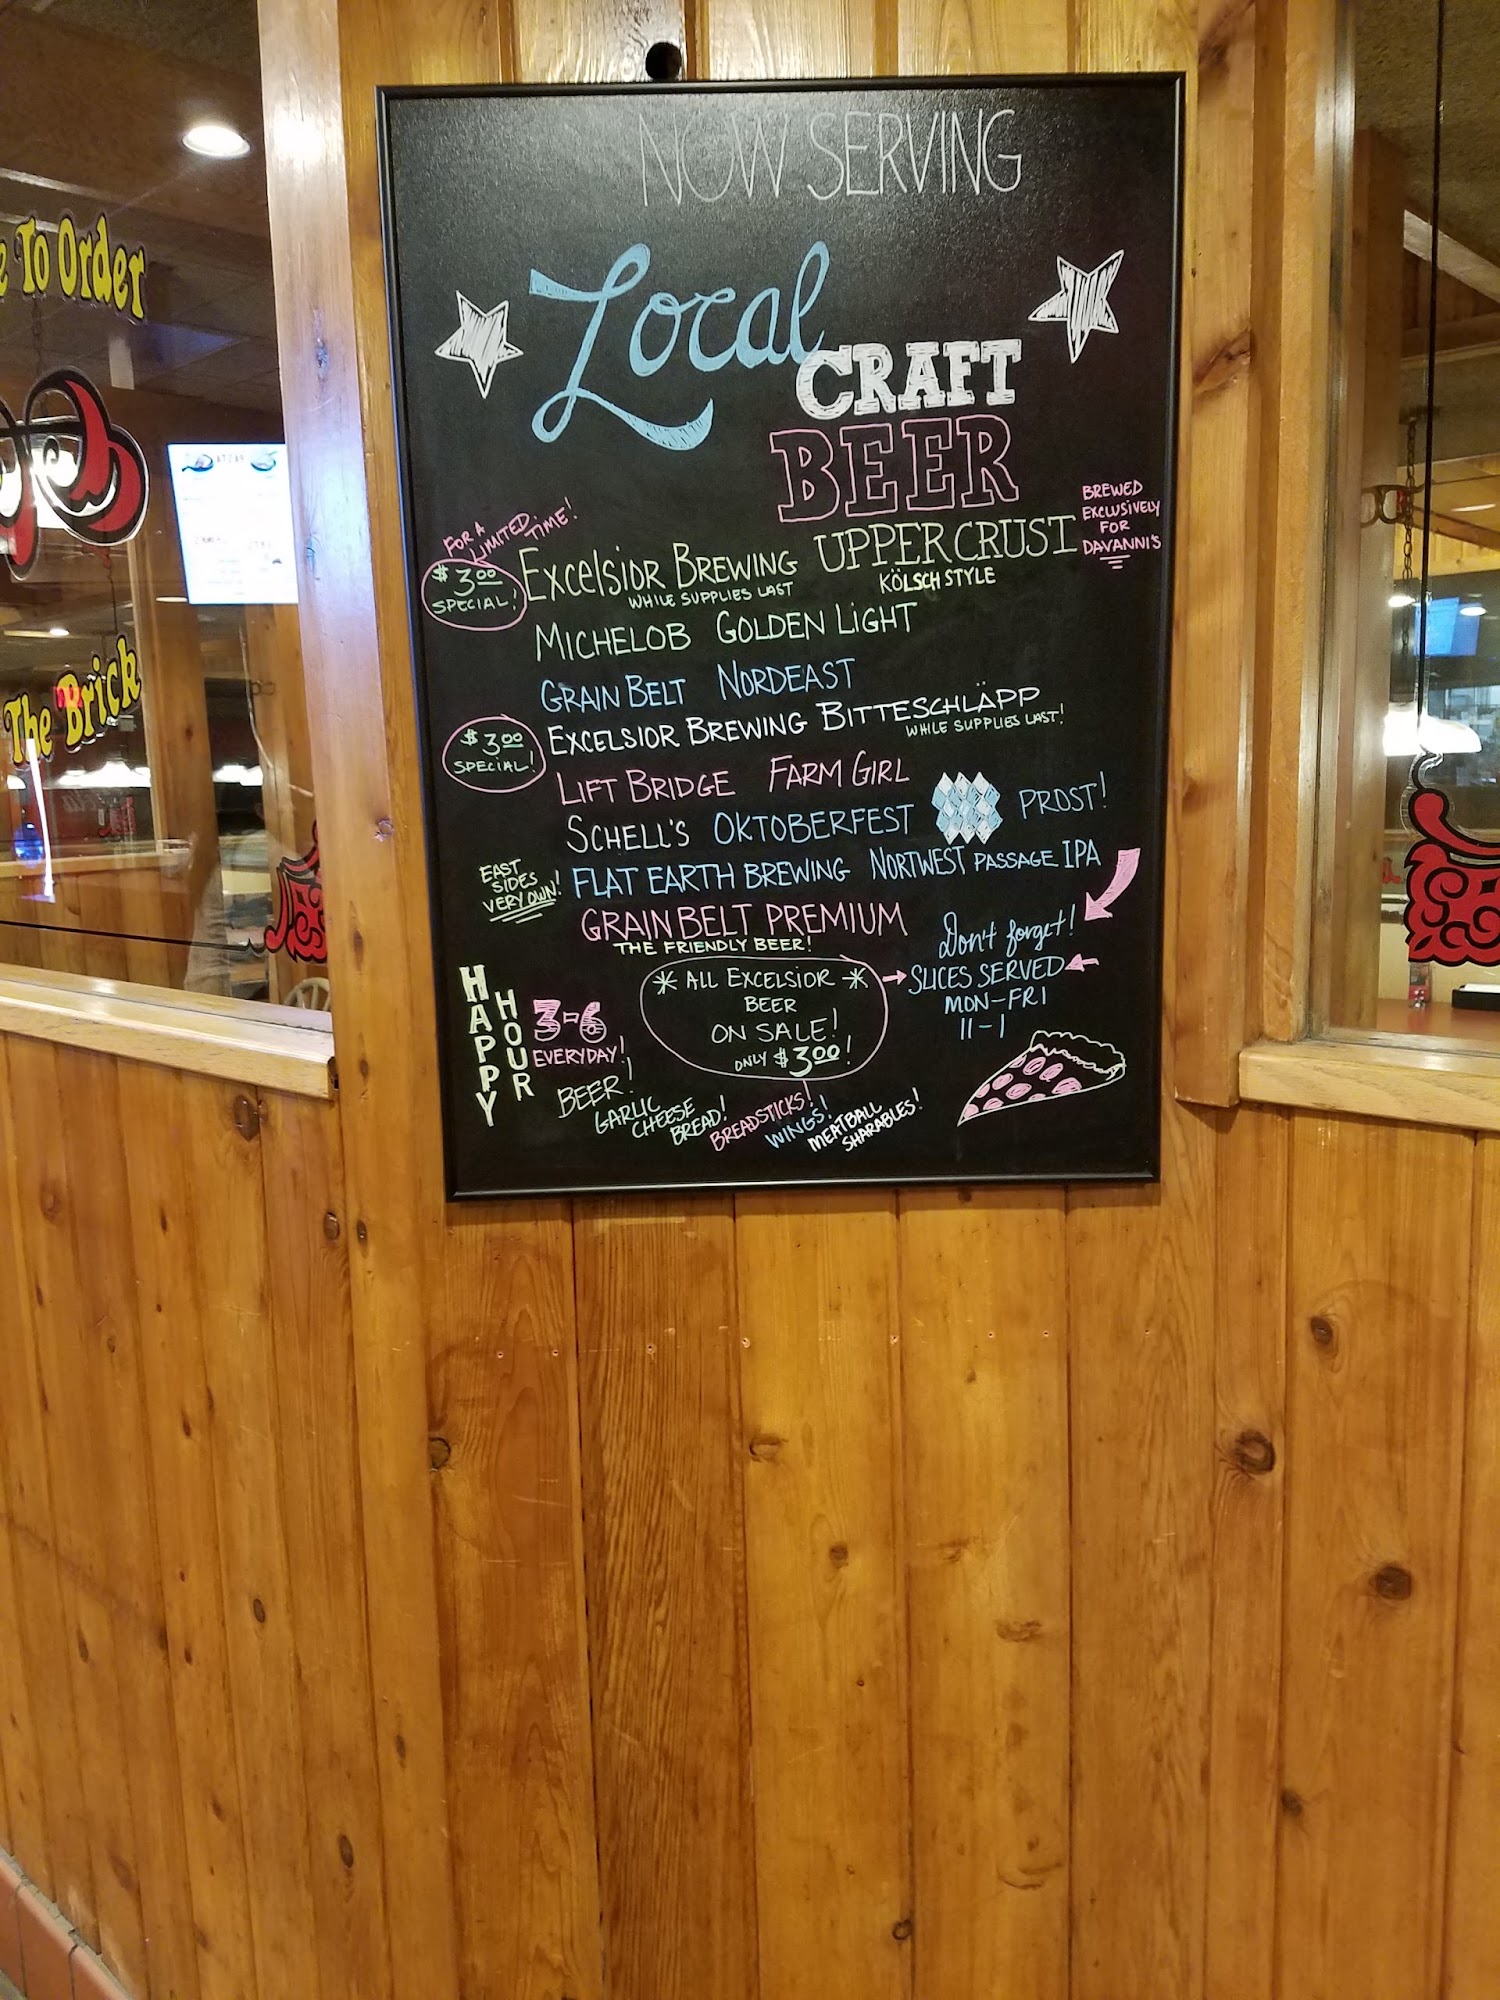 NOW SERVING
Local
CRAFT
BEER
BREWED
EXCLUSIVELY
FOR
DAVANNI'S
FOR A
LIMITED TIME!
$3.00
SPECIAL!
EXCELSIOR BREWING UPPER CRUST
WHILE SUPPLIES LAST
KÖLSCH STYLE
MICHELOB GOLDEN LIGHT
GRAIN BELT NORDEAST
$3.00
SPECIAL!
EXCELSIOR BREWING BITTESCHLÄPP
WHILE SUPPLIES LAST!
LIFT BRIDGE FARM GIRL
SCHELL'S OKTOBERFEST PROST!
EAST
SIDES
VERY OWN!
FLAT EARTH BREWING NORTWEST PASSAGE IPA
GRAIN BELT PREMIUM
THE FRIENDLY BEER!
Don't forget!
SLICES SERVED
MON-FRI
11-1
* ALL EXCELSIOR *
BEER
ON SALE!
ONLY $3.00!
HAPPY
HOUR
3-6
EVERYDAY!
BEER!
GARLIC
CHEESE
BREAD!
BREADSTICKS!
WINGS!
MEATBALL
SHARABLES!
To Order
The Brick